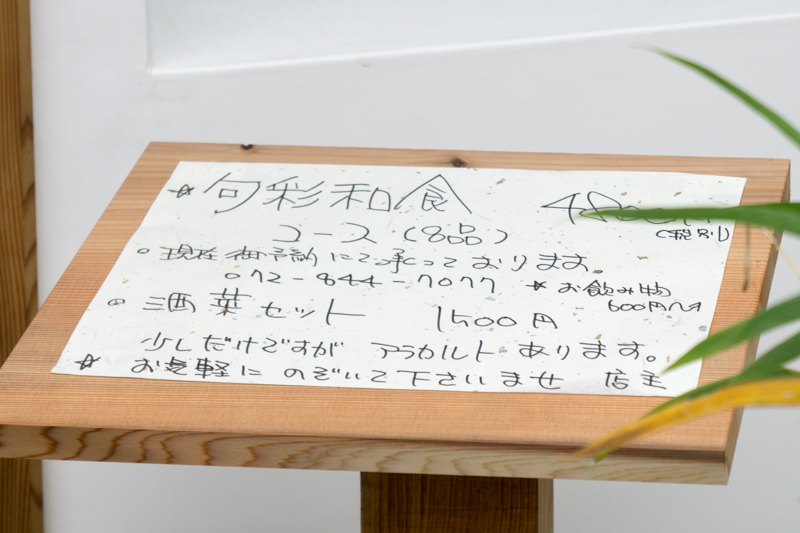 ☆ 旬彩和食 4800円
コース(8品) (税別)
○ 現在御予約にて承っております。
072-844-7077 ☆ お飲み物
600円〜
◎ 酒葉セット 1500円
少しだけですが アラカルトあります。
☆ お気軽に のぞいて下さいませ 店主